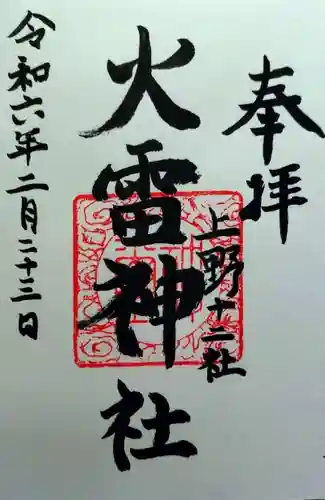 奉拝
上野十二社
火雷神社
令和六年二月二十三日